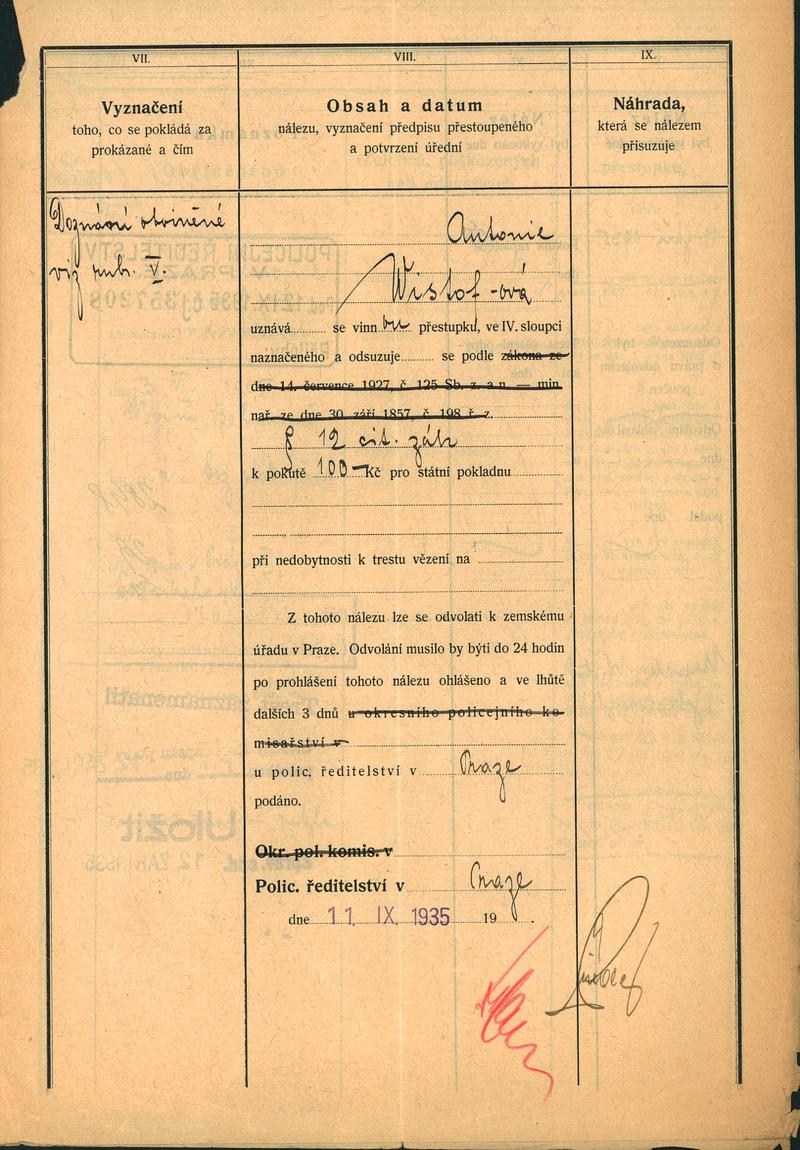 VII.
Vyznačení
toho, co se pokládá za
prokázané a čím
VIII.
Obsah a datum
nálezu, vyznačení předpisu přestoupeného
a potvrzení úřední
IX.
Náhrada,
která se nálezem
přisuzuje
Doznání obviněné
viz rub. V.
Antonie
Wistof-ová
uznává se vinnou přestupku, ve IV. sloupci
naznačeného a odsuzuje se podle zákona ze
dne 14. července 1927, č. 125 Sb. z. a n. — min.
nař. ze dne 30. září 1857, č. 198 ř. z.
§ 12 cit. zák
k pokutě 100 Kč pro státní pokladnu
při nedobytnosti k trestu vězení na
Z tohoto nálezu lze se odvolati k zemskému
úřadu v Praze. Odvolání musilo by býti do 24 hodin
po prohlášení tohoto nálezu ohlášeno a ve lhůtě
dalších 3 dnů u okresního policejního ko-
misařství v
u polic. ředitelství v Praze
podáno.
Okr. pol. komis. v
Polic. ředitelství v Praze
dne 11. IX. 1935 19 .